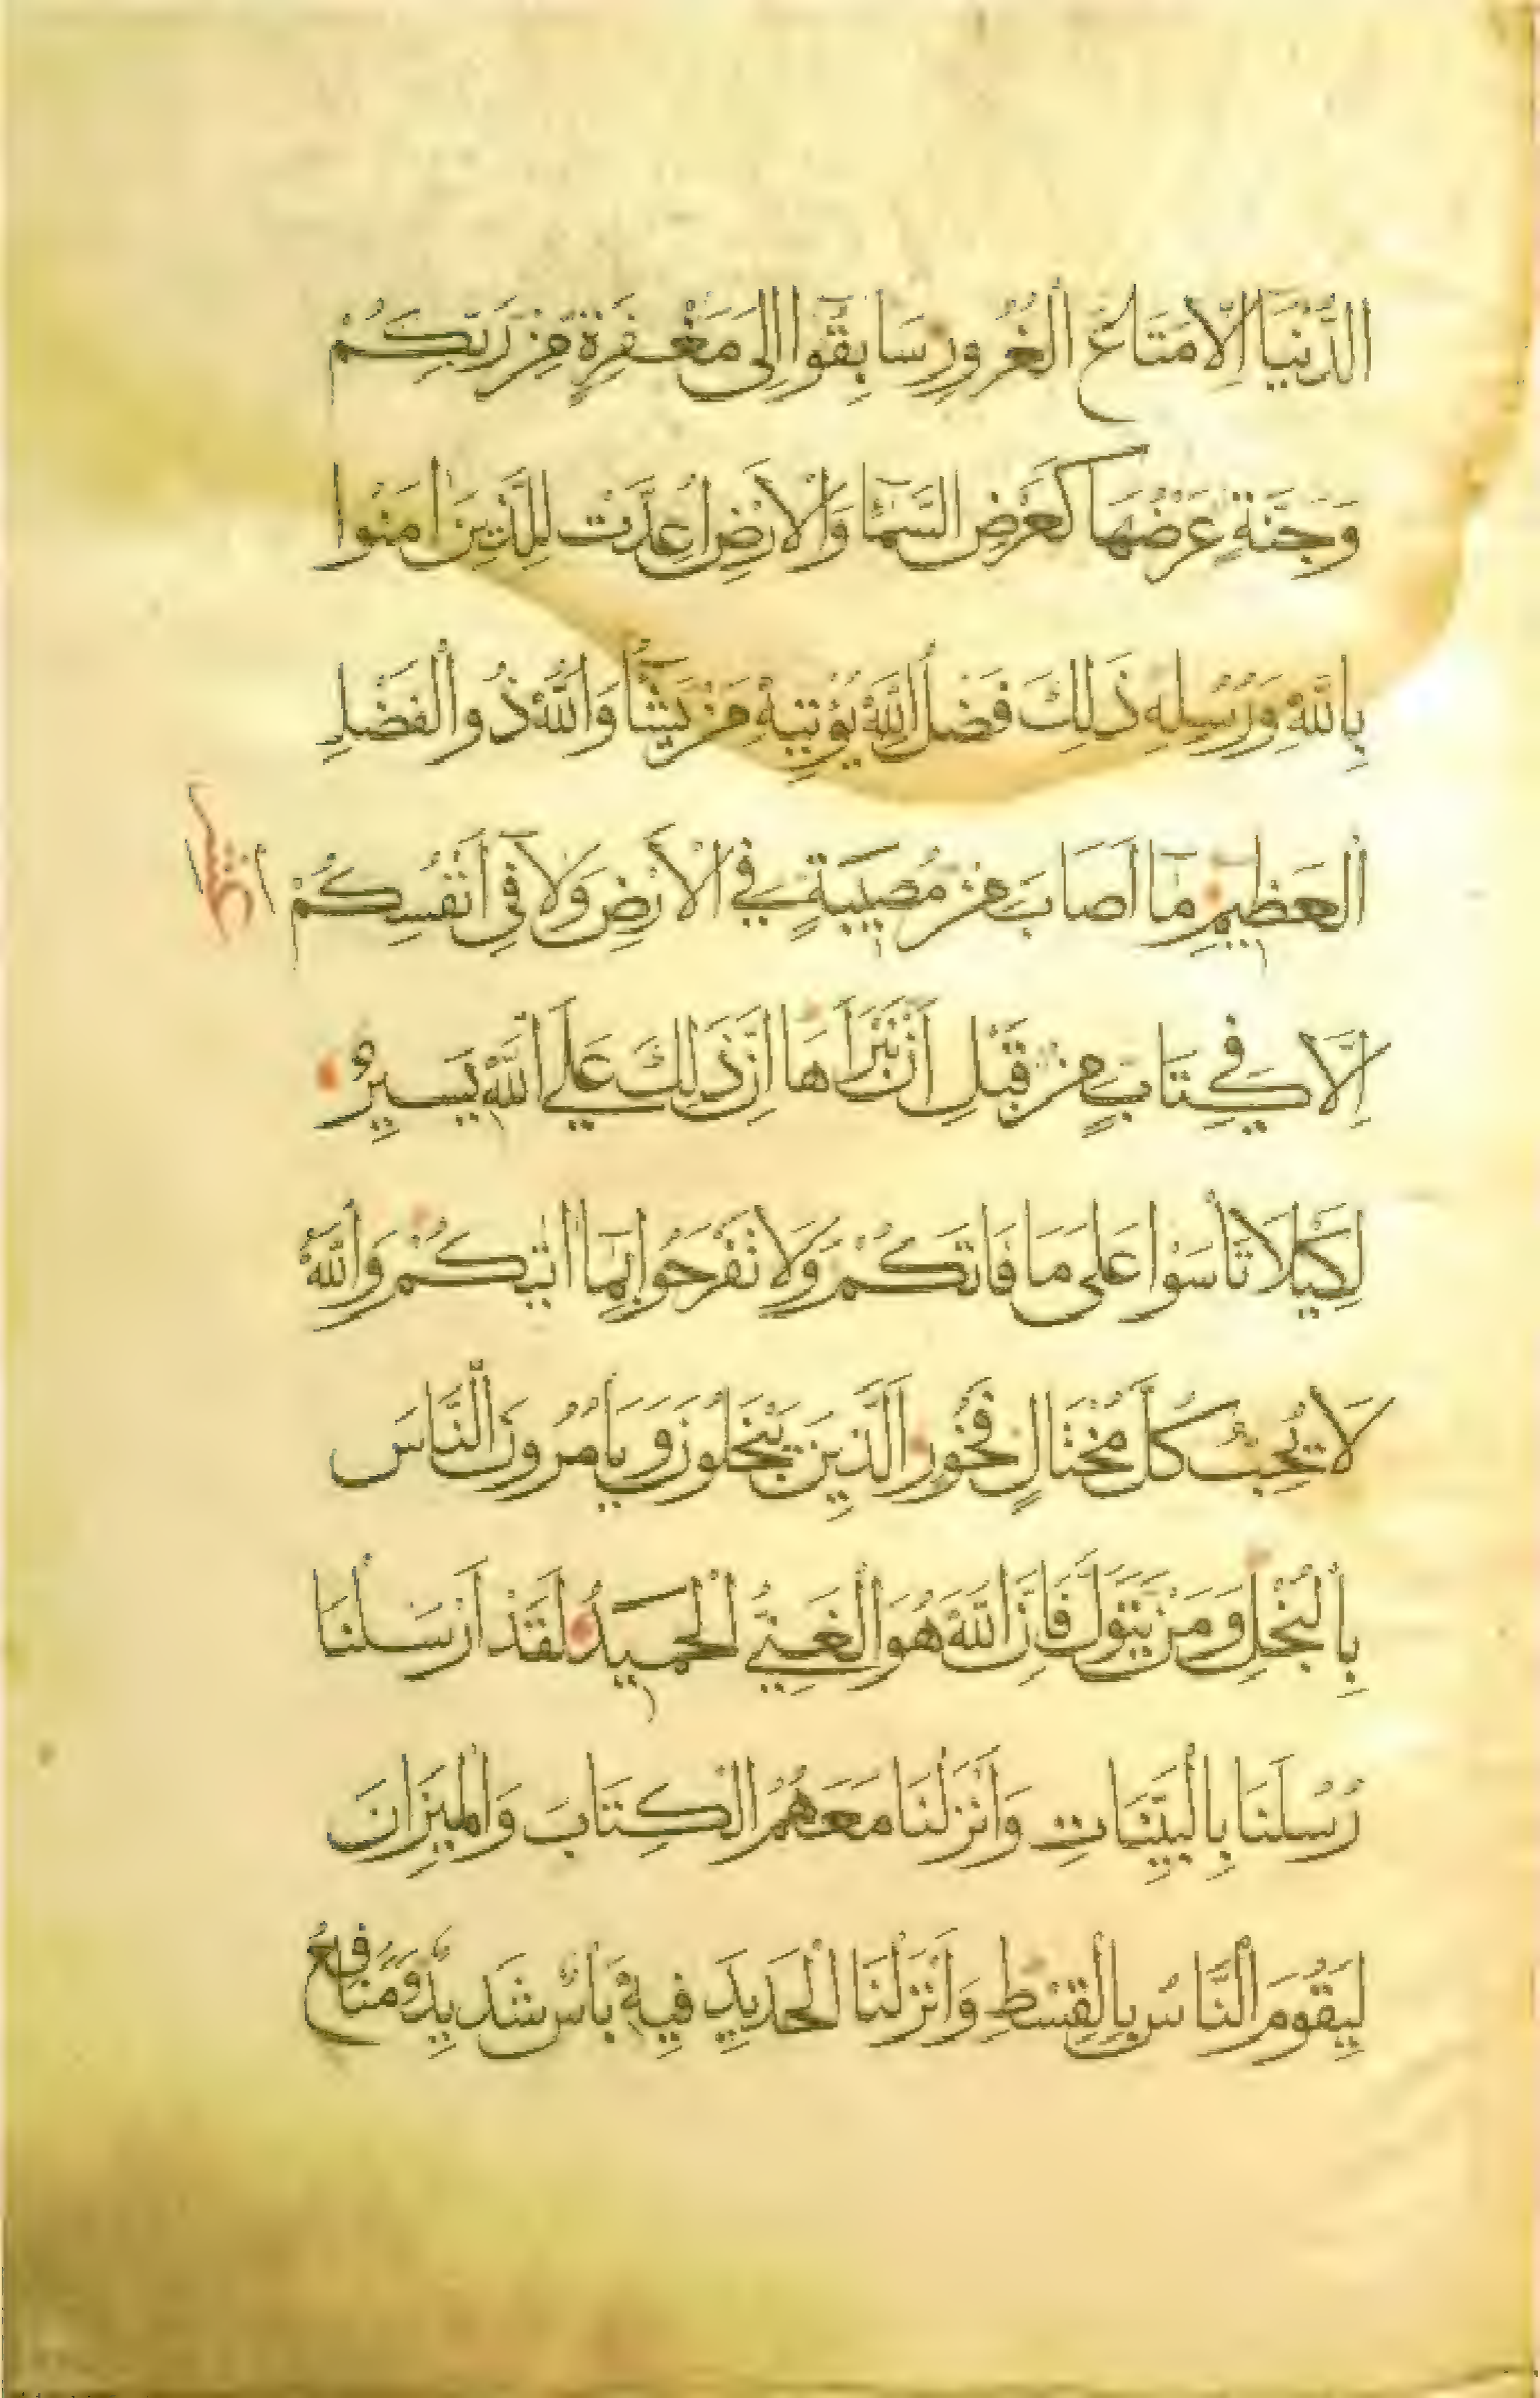 الدُّنْيَا إِلَّا مَتَاعُ الْغُرُورِ سَابِقُوا إِلَى مَغْفِرَةٍ مِنْ رَبِّكُمْ
وَجَنَّةٍ عَرْضُهَا كَعَرْضِ السَّمَاءِ وَالْأَرْضِ أُعِدَّتْ لِلَّذِينَ آمَنُوا
بِاللَّهِ وَرُسُلِهِ ذَلِكَ فَضْلُ اللَّهِ يُؤْتِيهِ مَنْ يَشَاءُ وَاللَّهُ ذُو الْفَضْلِ
الْعَظِيمِ مَا أَصَابَ مِنْ مُصِيبَةٍ فِي الْأَرْضِ وَلَا فِي أَنْفُسِكُمْ
إِلَّا فِي كِتَابٍ مِنْ قَبْلِ أَنْ نَبْرَأَهَا إِنَّ ذَلِكَ عَلَى اللَّهِ يَسِيرٌ
لِكَيْلَا تَأْسَوْا عَلَى مَا فَاتَكُمْ وَلَا تَفْرَحُوا بِمَا آتَيكُمْ وَاللَّهُ
لَا يُحِبُّ كُلَّ مُخْتَالٍ فَخُورٍ الَّذِينَ يَبْخَلُونَ وَيَأْمُرُونَ النَّاسَ
بِالْبُخْلِ وَمَنْ يَتَوَلَّ فَإِنَّ اللَّهَ هُوَ الْغَنِيُّ الْحَمِيدُ لَقَدْ أَرْسَلْنَا
رُسُلَنَا بِالْبَيِّنَاتِ وَأَنْزَلْنَا مَعَهُمُ الْكِتَابَ وَالْمِيزَانَ
لِيَقُومَ النَّاسُ بِالْقِسْطِ وَأَنْزَلْنَا الْحَدِيدَ فِيهِ بَأْسٌ شَدِيدٌ وَمَنَافِعُ